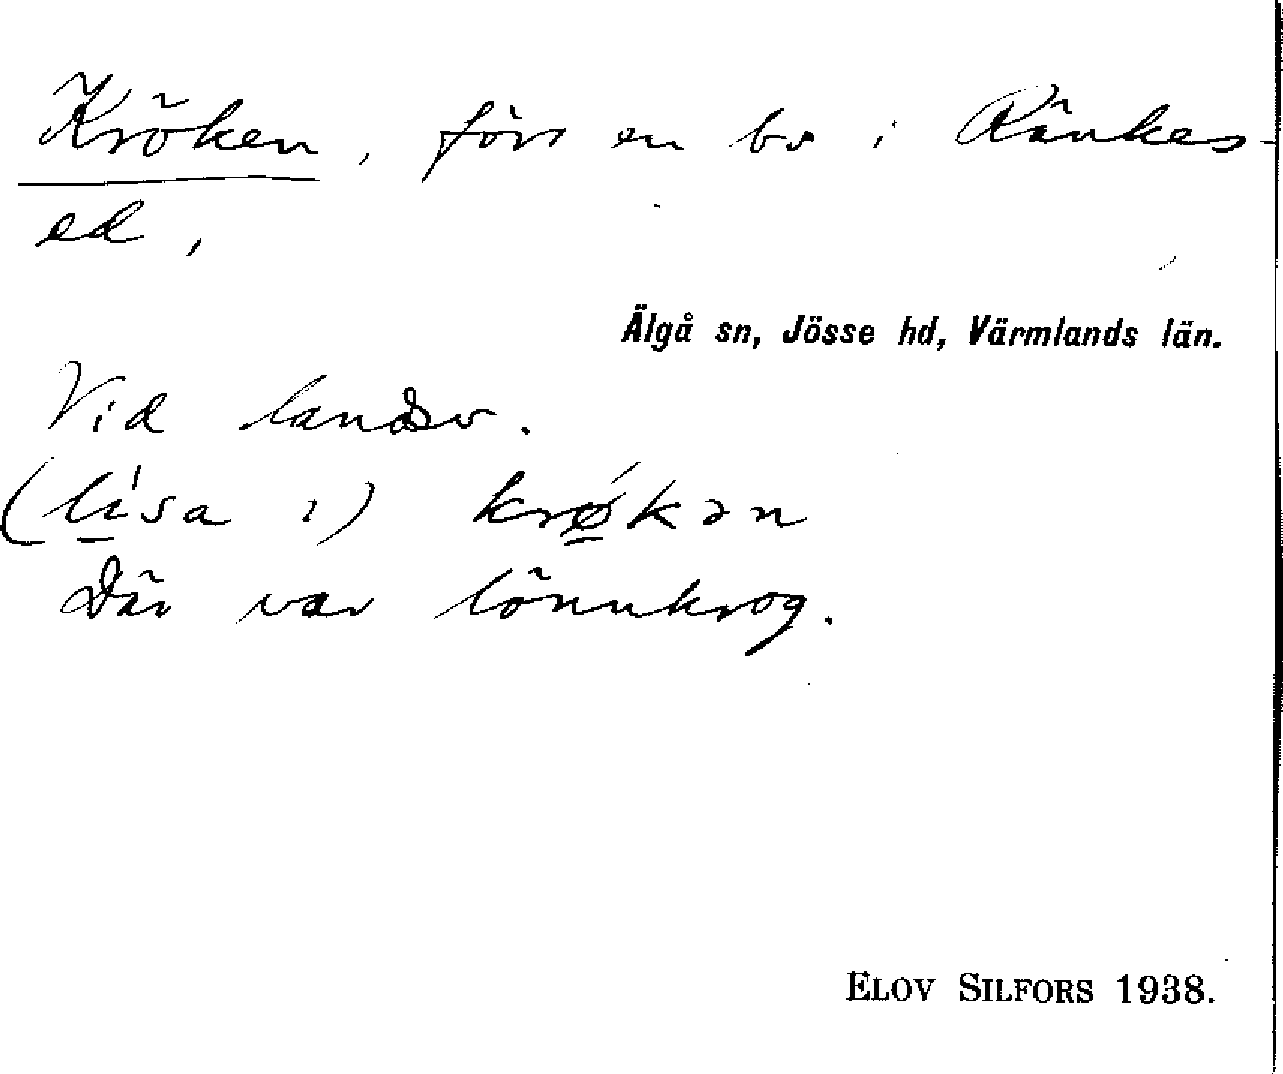 Kröken, förr en bs i Ränkes-
ed,
Älgå sn, Jösse hd, Värmlands län.
Vid landsv.
(lisa i) krøkən
Där var lönnkrog.
ELOV SILFORS 1938.